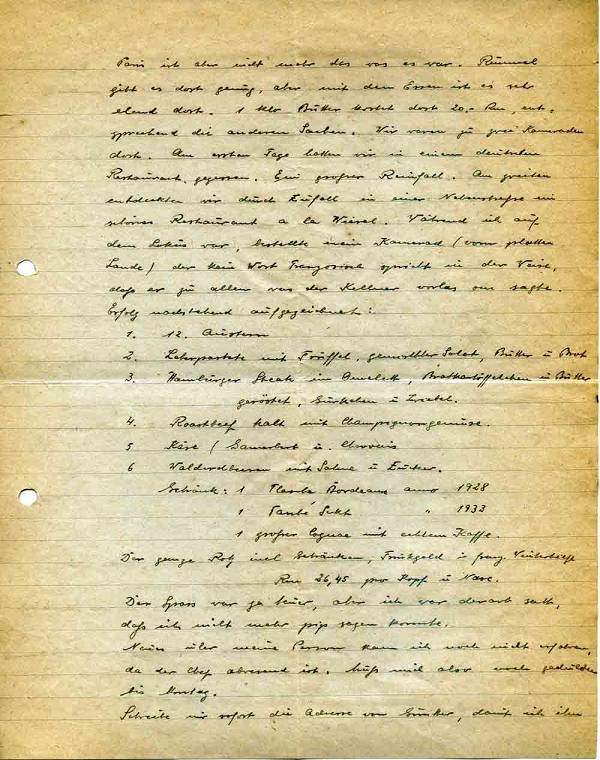 Paris ist aber nicht mehr das was es war. Rummel
gibt es dort genug, aber mit dem Essen ist es sehr
elend dort. 1 klr Butter kostet dort 20,- Rm, ent-
sprechend die anderen Sachen. Wir waren zu zwei Kameraden
dort. Am ersten Tage hatten wir in einem deutschen
Restaurant gegessen. Ein großer Reinfall. Am zweiten
entdeckten wir durch Zufall in einer Nebenstraße ein
schönes Restaurant a la Wiesel. Während ich auf
dem Lokus war, bestellte mein Kamerad (vom platten
Lande) der kein Wort Französisch spricht in der Weise,
daß er zu allem was der Kellner vorlas oui sagte.
Erfolg nachstehend aufgezeichnet:
1. 12. Austern
2. mit Trüffel, gemischter Salat, Butter u Brot
3. Hamburger Steak im Omelett, Bratkartöffelchen in Butter
geröstet, Gürkchen u Zwiebel.
4. Roastbeef kalt mit Champignongemüse.
5 Käse / Camenbert u.
6 Walderdbeeren mit Sahne u Zucker.
Getränk: 1 Flasche Bordeaux anno 1928
1 Sekt " 1933
1 großer Cognac mit echtem Kaffe.
Der ganze incl Getränken, Trinkgeld
Rm 26,45 pro Kopf u Nase.
Der Spass war ja teuer, aber ich war derart satt,
daß ich nicht mehr pips sagen konnte.
Neues über meine Person kann ich noch nicht erfahren,
da der Chef abwesend ist. Muß mich also noch gedulden
bis Montag.
Schreibe mir sofort die Adresse von Günter, damit ich ihm